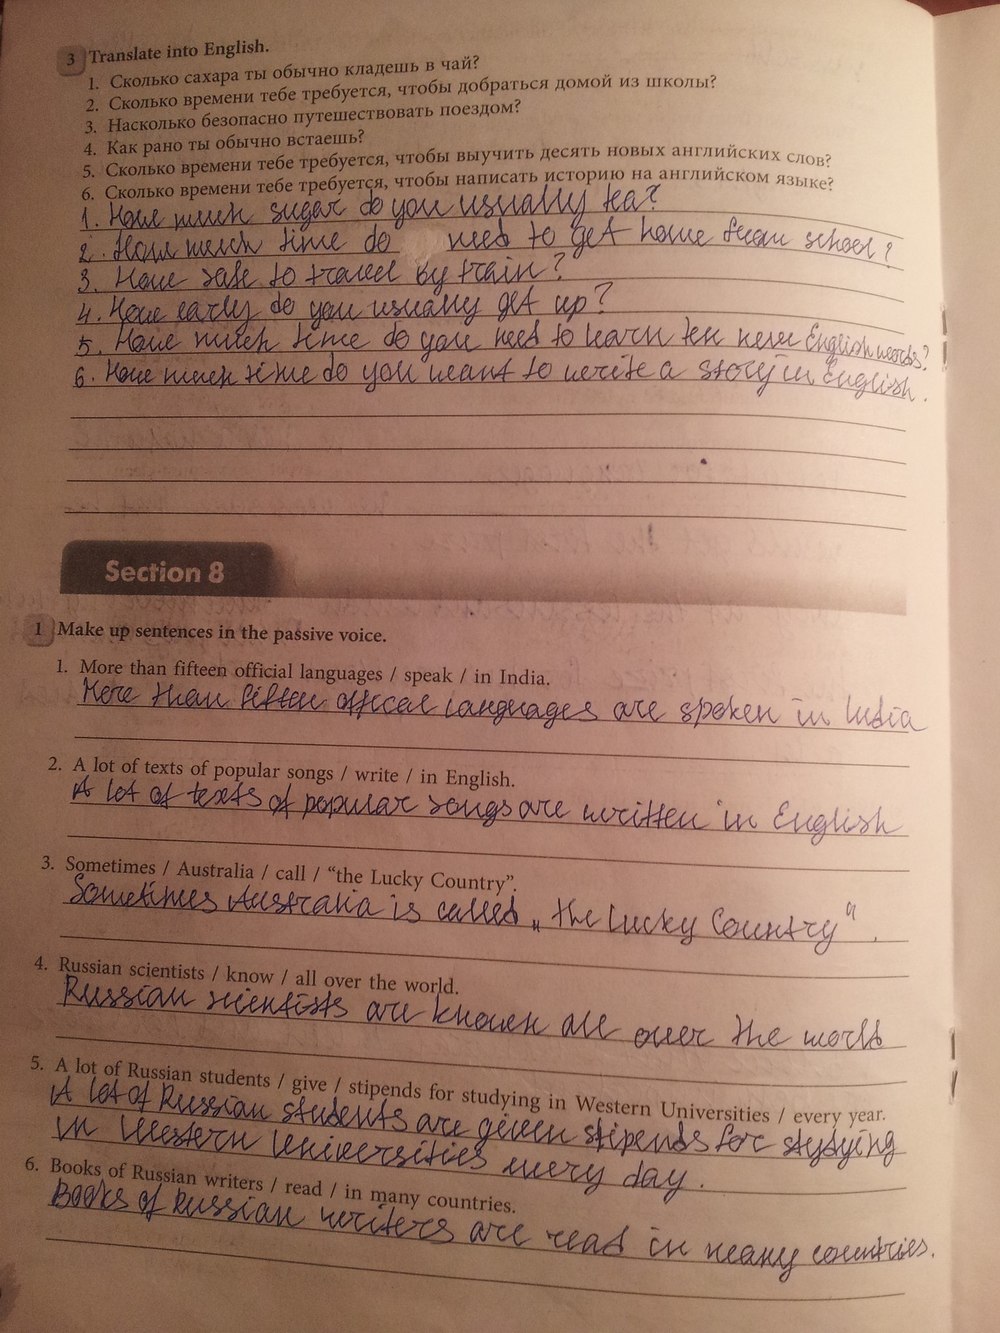 3 Translate into English.
1. Сколько сахара ты обычно кладешь в чай?
2. Сколько времени тебе требуется, чтобы добраться домой из школы?
3. Насколько безопасно путешествовать поездом?
4. Как рано ты обычно встаешь?
5. Сколько времени тебе требуется, чтобы выучить десять новых английских слов?
6. Сколько времени тебе требуется, чтобы написать историю на английском языке?
1. How much sugar do you usually tea?
2. How much time do need to get home from school?
3. How safe to travel by train?
4. How early do you usually get up?
5. How much time do you need to learn ten new English words?
6. How much time do you want to write a story in English.
Section 8
1 Make up sentences in the passive voice.
1. More than fifteen official languages / speak / in India.
More than fiften offical languages are spoken in India
2. A lot of texts of popular songs / write / in English.
A lot of texts of popular songs are written in English
3. Sometimes / Australia / call / “the Lucky Country”.
Sometimes Australia is called „the Lucky Country“.
4. Russian scientists / know / all over the world.
Russian scientists are known all over the world
5. A lot of Russian students / give / stipends for studying in Western Universities / every year.
A lot of Russian students are given stipends for stydying
in Western Universities every day.
6. Books of Russian writers / read / in many countries.
Books of Russian writers are read in many countries.